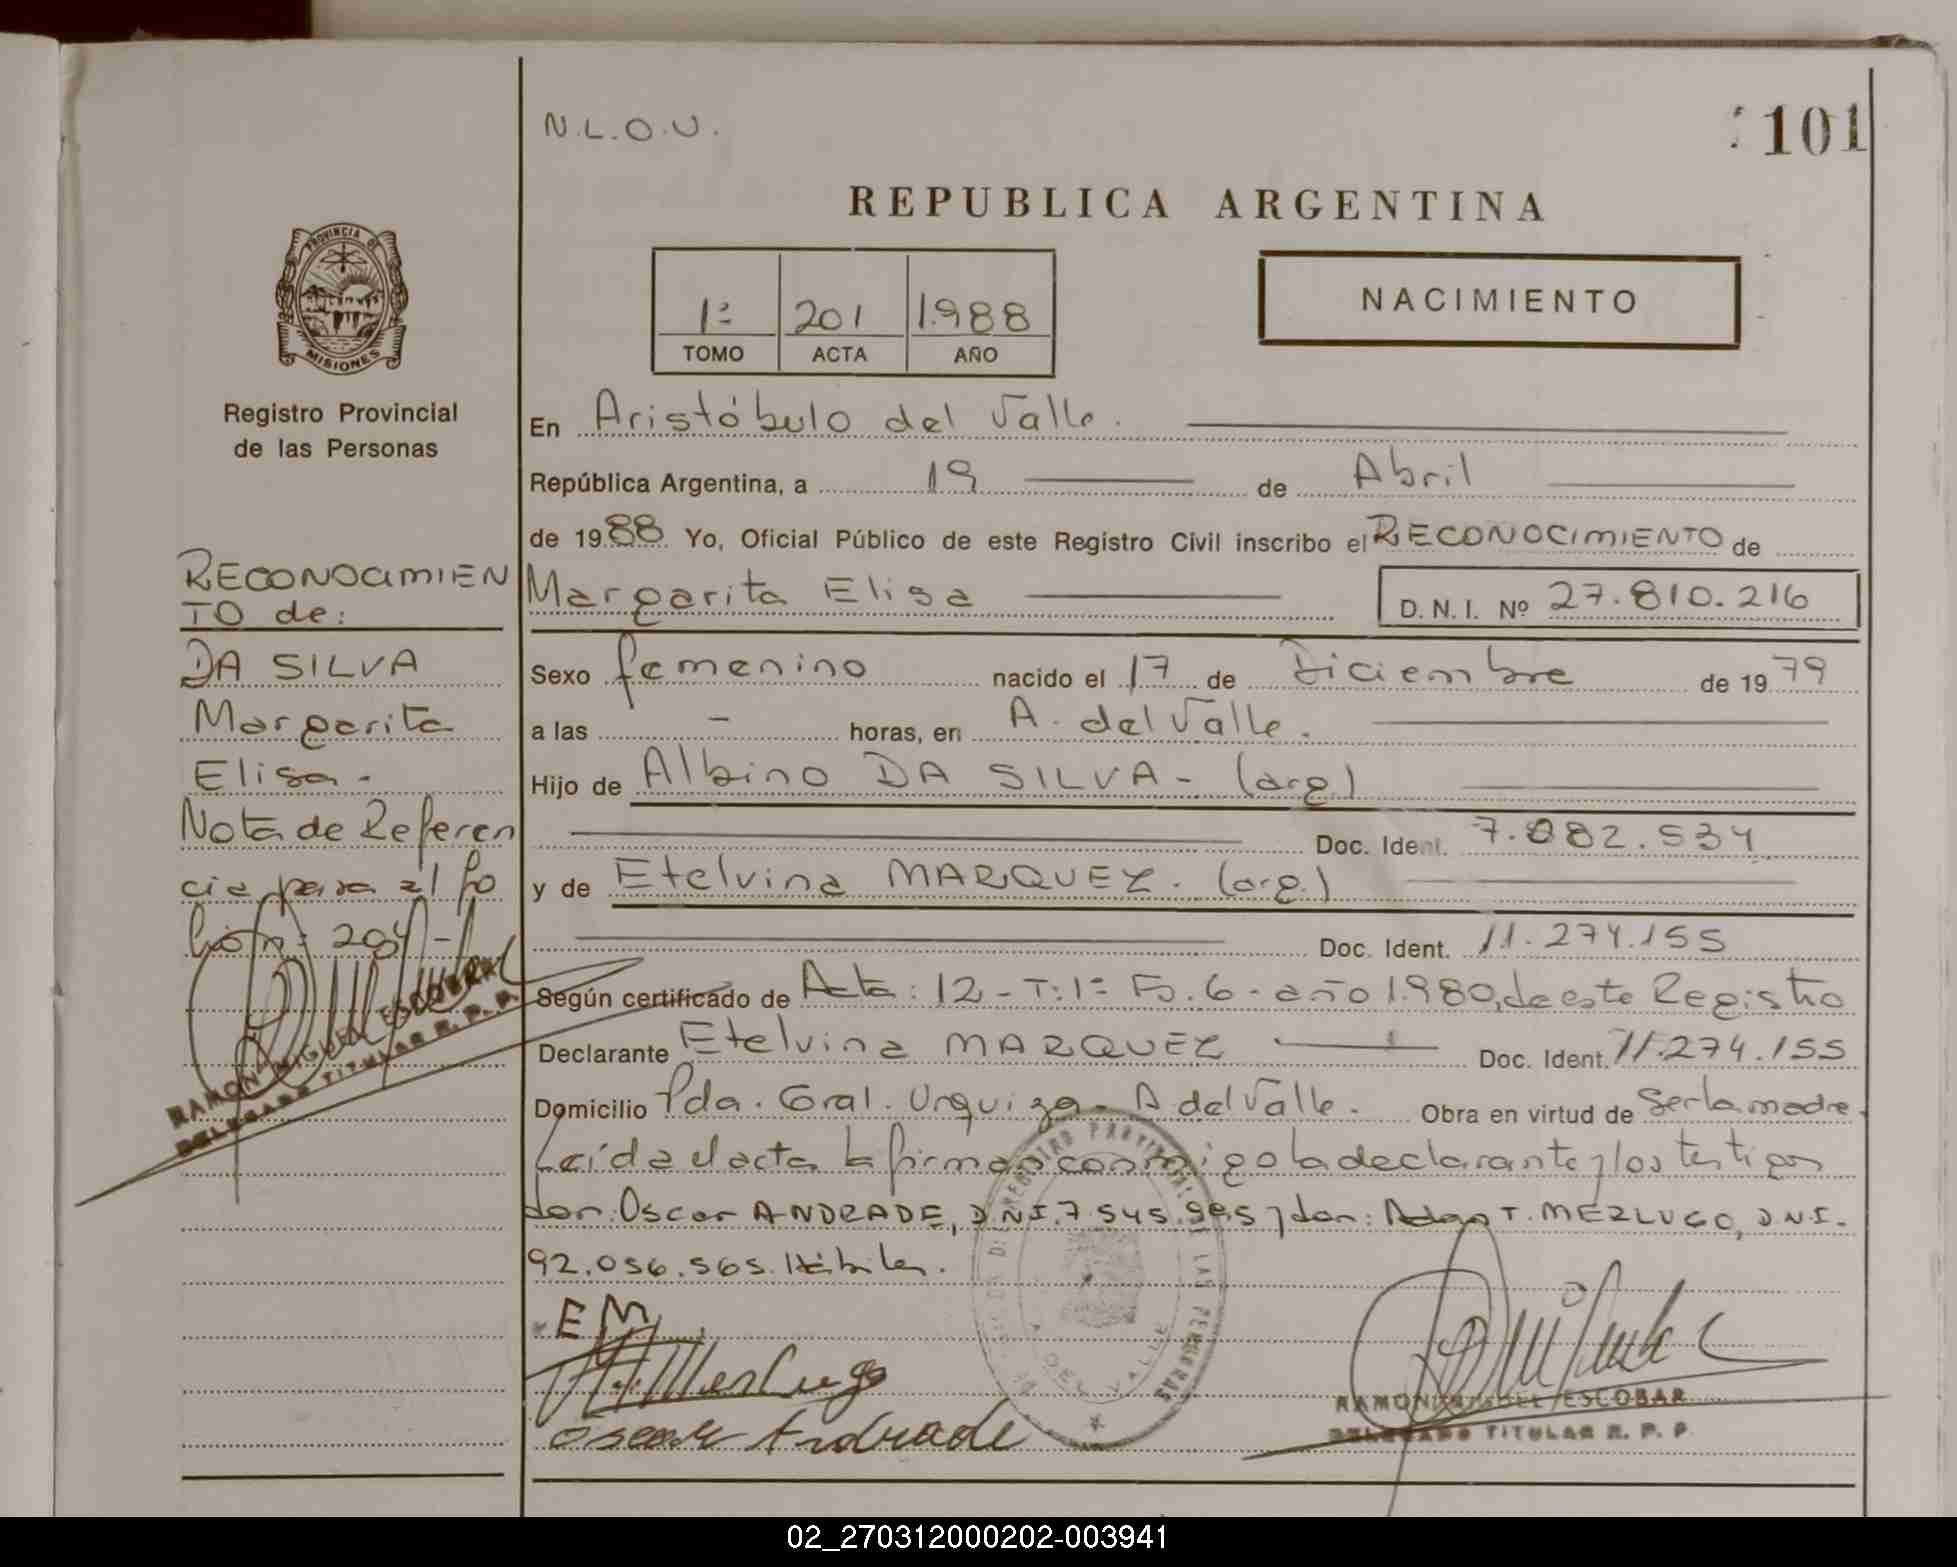 N.L.O.U.
101
REPUBLICA ARGENTINA
PROVINCIA DE
MISIONES
1º 201 1.988
TOMO ACTA AÑO
NACIMIENTO
Registro Provincial
de las Personas
En Aristóbulo del Valle.
República Argentina, a 19 de Abril
de 1988 Yo, Oficial Público de este Registro Civil inscribo el RECONOCIMIENTO de
Margarita Elisa D.N.I. Nº 27.810.216
Sexo femenino nacido el 17 de Diciembre de 1979
a las - horas, en A. del Valle.
Hijo de Albino DA SILVA - (arg.)
Doc. Ident. 7.882.534
y de Etelvina MARQUEZ. (arg.)
Doc. Ident. 11.274.155
Según certificado de Acta: 12 - T: 1º Fo. 6 - año 1.980, de este Registro
Declarante Etelvina MARQUEZ Doc. Ident. 11.274.155
Domicilio Pda. Gral. Urquiza - A del Valle. Obra en virtud de Ser la madre.
Leída el acta la firman conmigo la declarante y los testigos
don: Oscar ANDRADE, D.N.I. 7.545.985 y don: T. MERLUGO, D.N.I.
92.056.565. Hábiles.
E M
Oscar Andrade
RAMON MIGUEL ESCOBAR
DELEGADO TITULAR R. P. P.
REGISTRO PROVINCIAL DE LAS PERSONAS
A. DEL VALLE
RECONOCIMIEN
TO de:
DA SILVA
Margarita
Elisa -
Nota de Referen
cia para el fo
lio nº 204 -
RAMON MIGUEL ESCOBAR
DELEGADO TITULAR R. P. P.
02_270312000202-003941